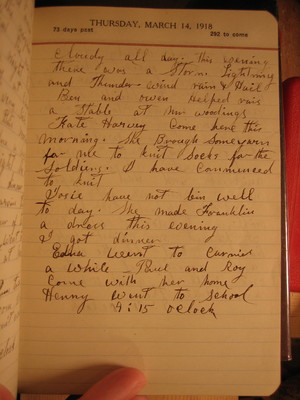 THURSDAY, MARCH 14, 1918
73 days past 292 to come
Cloudy all day. this evening
there was a Storm Lightning
and Thunder - wind rain & Hail
Ben and owen helped rais
a Stable at Mr woodings
Kate Harvey Come here this
morning. She Brough Some yarn
for me to Knit Socks for the
Soldiers. I have Commenced
to Knit
Josie have not bin well
to day. She made Franklin
a dress this evening
I got dinner
Edna went to
a while - and Roy
Come with her home
Henny went to School
9:15 oclock